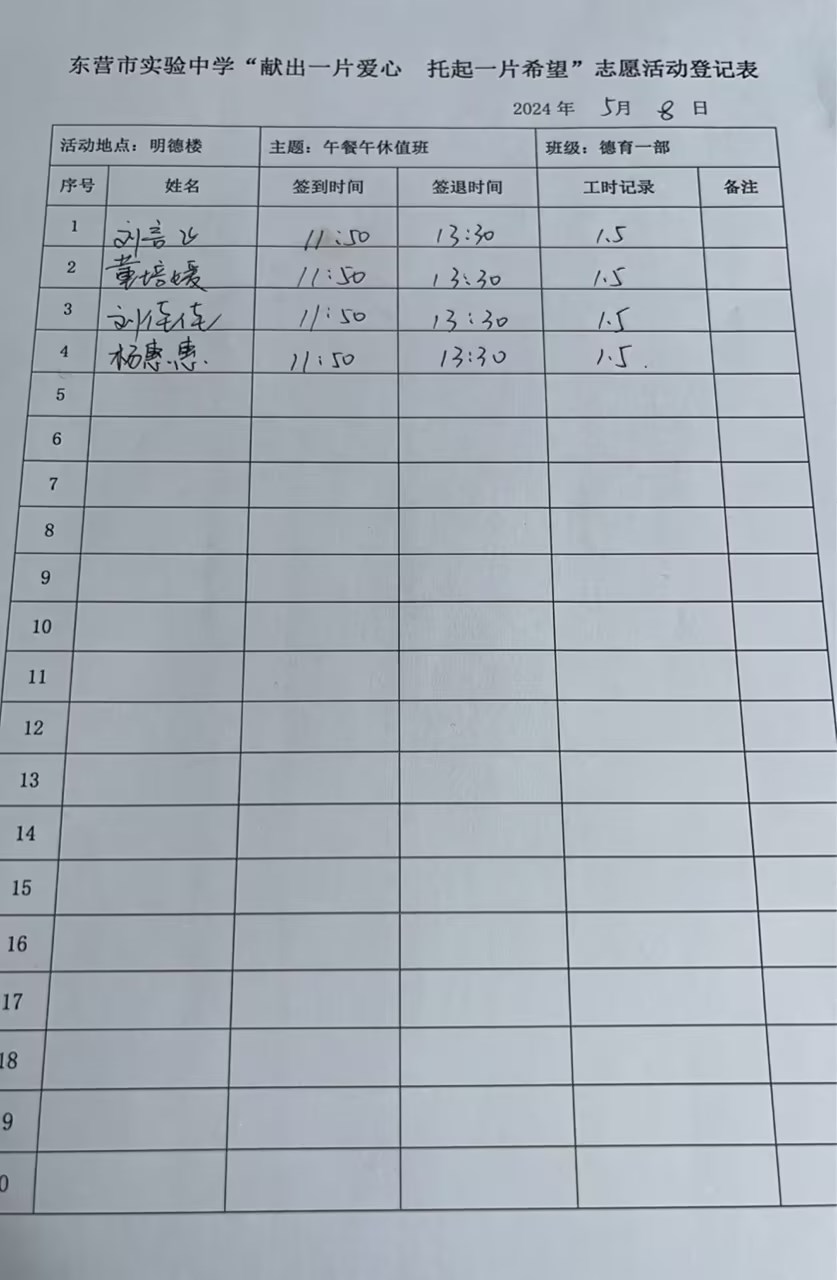 东营市实验中学“献出一片爱心 托起一片希望”志愿活动登记表
2024 年 5月 8 日
活动地点：明德楼 主题：午餐午休值班 班级：德育一部
序号 姓名 签到时间 签退时间 工时记录 备注
1 刘言 11:50 13:30 1.5
2 董培媛 11:50 13:30 1.5
3 刘佳佳 11:50 13:30 1.5
4 杨惠惠 11:50 13:30 1.5
5
6
7
8
9
10
11
12
13
14
15
16
17
18
9
0